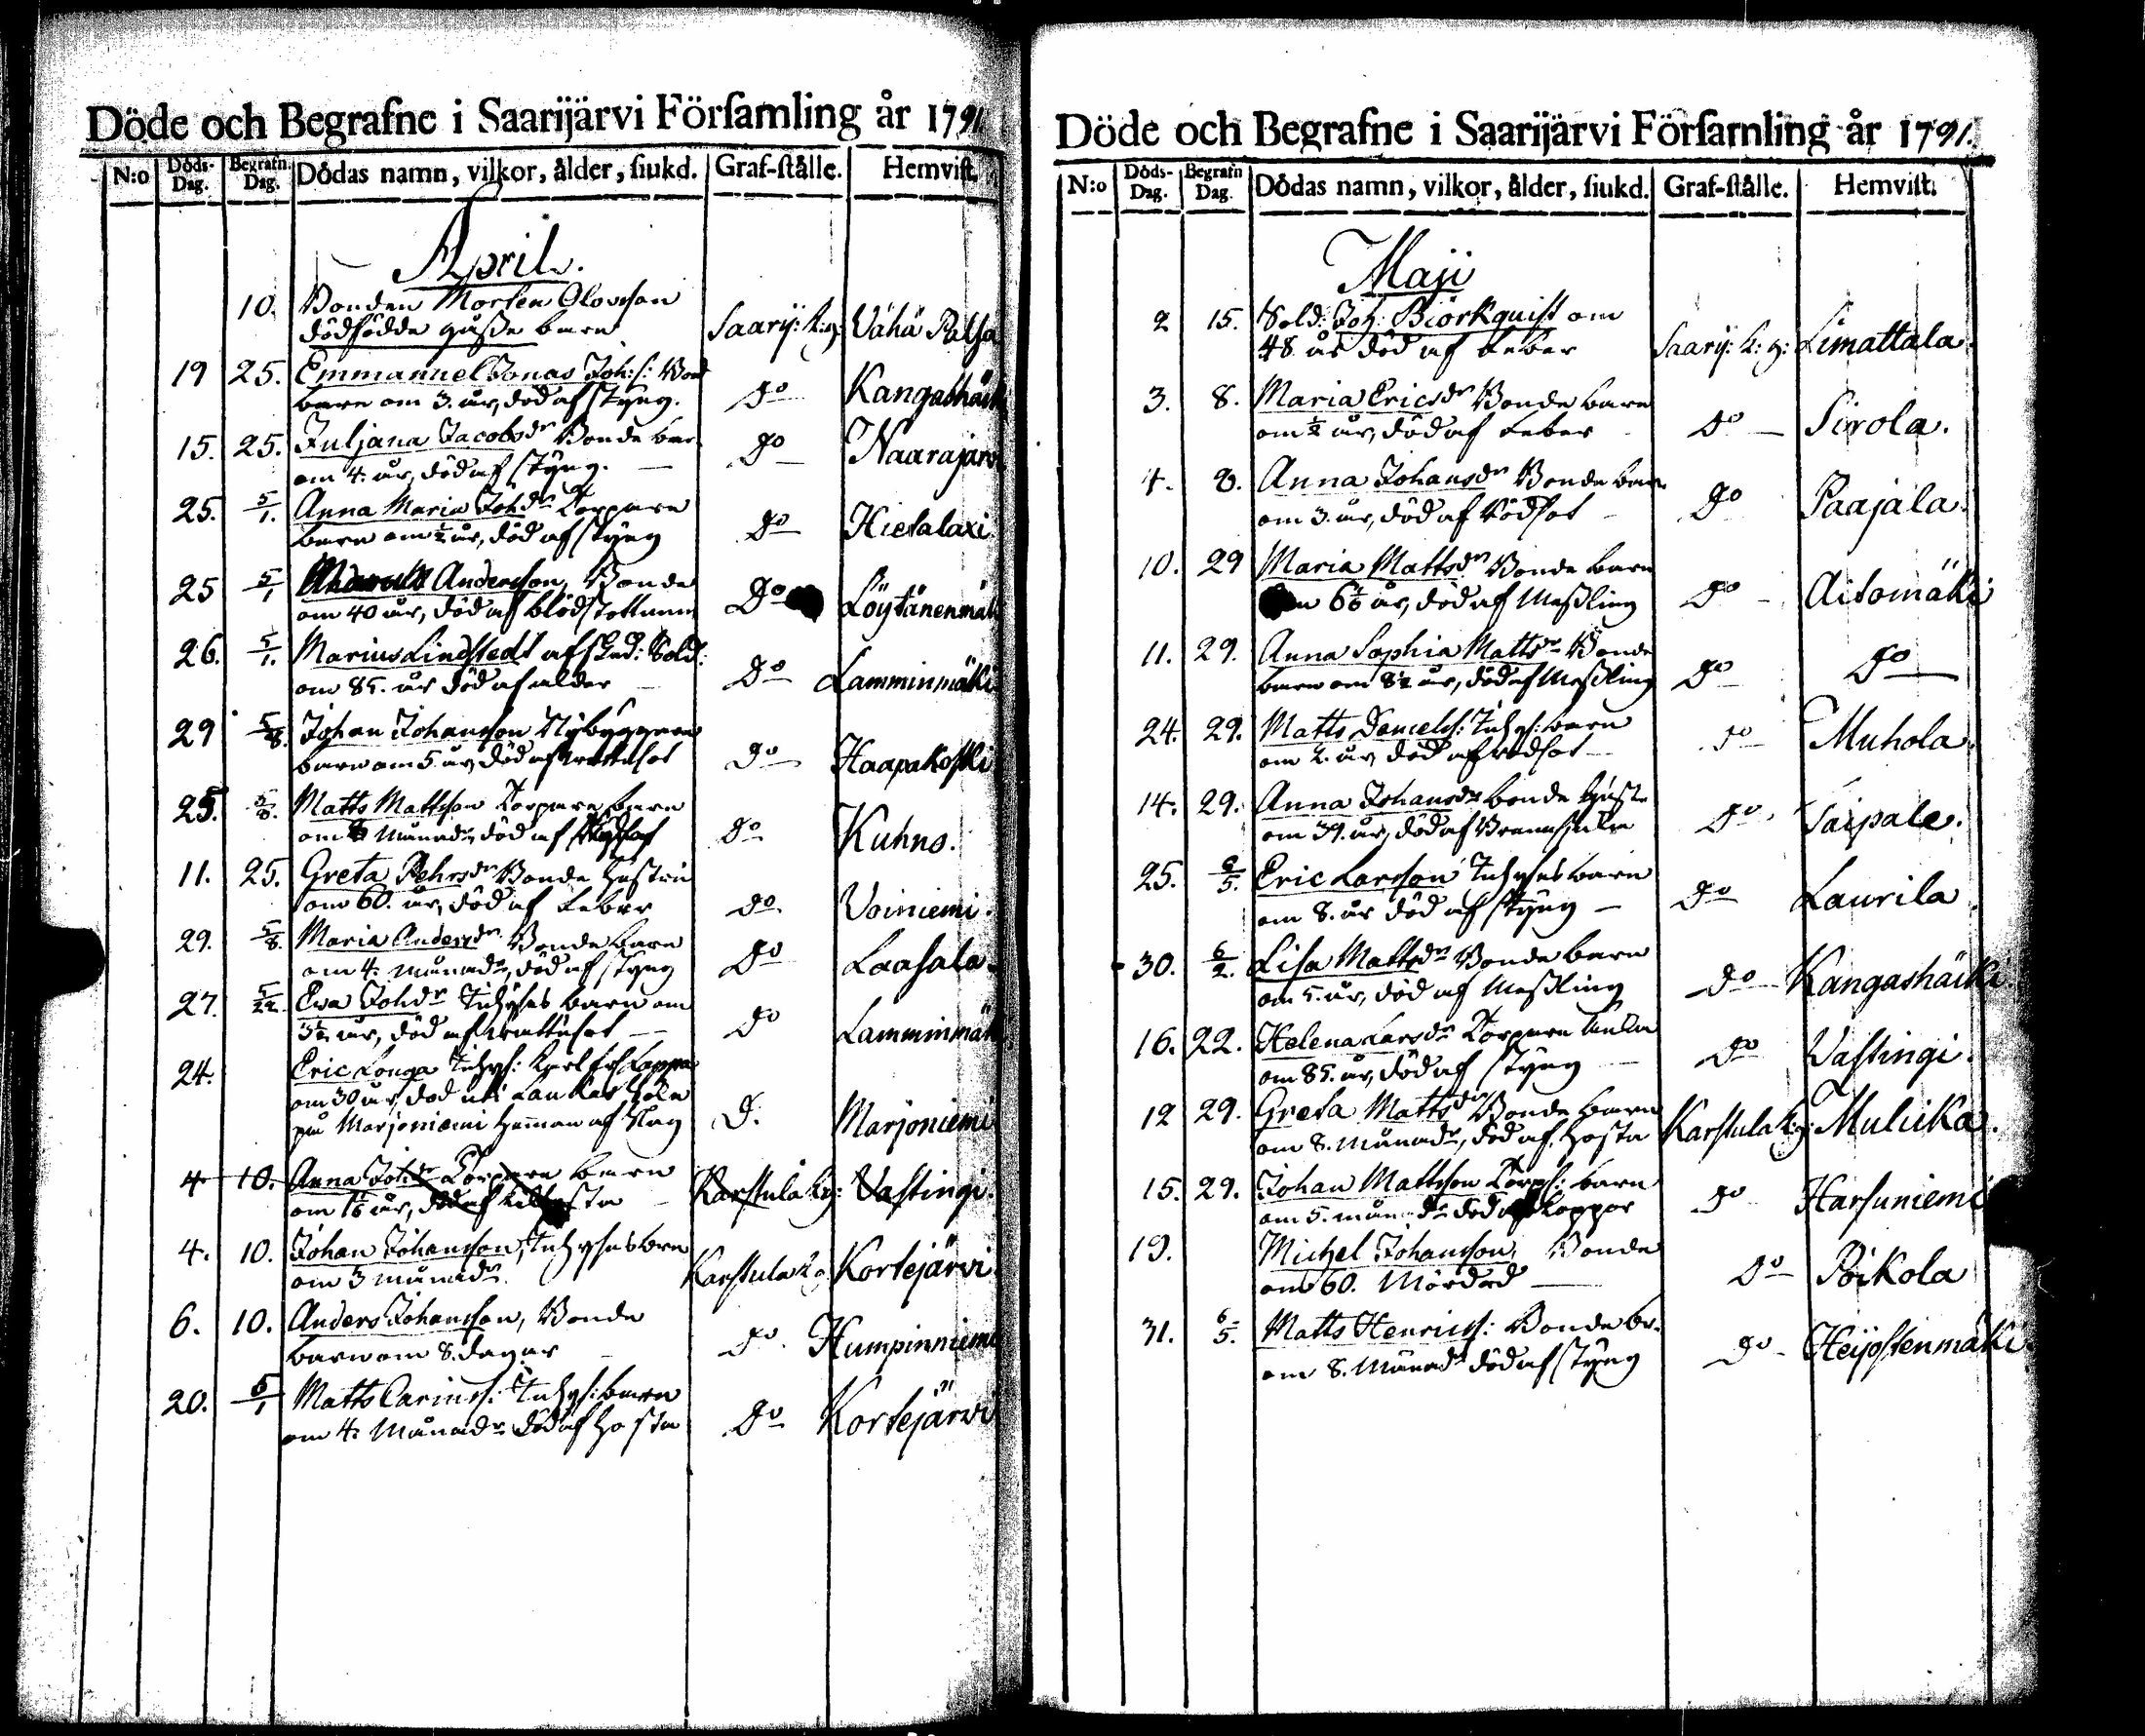 Döde och Begrafne i Saarijärvi Förſamling år 1791.
N:o Döds-Dag. Begrafn. Dag. Dödas namn, vilkor, ålder, ſiukd. Graf-ſtälle. Hemviſt.
April.
10. Bonden Morten Olovsson Saarij: k: g: Vähä Palsa
dödfödde gåsse barn
19 25. Emmanuel Jonas Joh: s: Bond Do Kangashäk
barn om 3. år, död af styng.
15. 25. Juljana Jacobsdr Bonde bar Do Naarajärv
om 4. år, död af styng.
25. 5/1. Anna Maria Johdr Torpare Do Hietalaxi
barn om ½ år, död af styng
25 5/1 Andersson, Bonde Do Löytänenmäk
om 40 år, död af blodstörtning
26. 5/1. Marius Lindstedt afsked: Sold: Do Lamminmäki
om 85. år död af ålder
29 5/8. Johan Johansson Nybyggare Do Haapakoski
barn om 5 år, död af
25. 5/8. Matts Mattsson Torpare barn Do Kuhno.
om Månadr död af
11. 25. Greta Pehrsdr Bonde hustru do. Voiniemi.
om 60. år, död af feber
29. 5/8. Maria Andersdr Bonde barn Do Laasala.
om 4. månadr, död af styng
27. 5/22. Eva Johdr Inhyses barn om Do Lamminmäk
3½ år, död af
24. Eric Longa Inhys: Karl D. Marjoniemi
om 30 år, död uti
på Marjoniemi hemman af slag
4. 10. Anna Joh:dr Torpare barn Karstula k:g: Vastingi.
om år, död af
4. 10. Johan Johansson, Inhyses barn Karstula k g Kortejärvi.
om 3 månadr
6. 10. Anders Johansson, Bonde Do Humpinniemi
barn om 8. dagar
20. 5/1 Matts Carinss: Inhys: barn Do Kortejärvi
om 4. Månadr död af hosta
Döde och Begrafne i Saarijärvi Förſamling år 1791.
N:o Döds-Dag. Begrafn Dag. Dödas namn, vilkor, ålder, ſiukd. Graf-ſtälle. Hemviſt.
Maji
2 15. Sold: Joh: Biörkquist om Saarij: k: g: Limattala
48 år död af feber
3. 8. Maria Ericsdr Bonde barn Do Sirola.
om ½ år, död af feber
4. 8. Anna Johansdr Bonde barn Do Paajala.
om 3. år, död af Rödsot
10. 29 Maria Mattsdr Bonde barn Do Aitomäki
om 6 år, död af Messling
11. 29. Anna Sophia Mattsdr Bonde Do Do
barn om 8½ år, död af Messling
24. 29. Matts Danielss: Inhys: barn Do Muhola.
om 2. år, död af rödsot
14. 29. Anna Johansdr bonde hustr Do Taipale.
om 39. år, död af
25. 6/5. Eric Larsson Inhyses barn Do Laurila
om 8. år död af styng
30. 6/2. Lisa Mattsdr Bonde barn Do Kangashäki.
om 5. år, död af Messling
16. 22. Helena Larsdr Torpare Enka Do Vastingi.
om 85. år, död af styng
12 29. Greta Mattsdr Bonde barn Karstula k:g: Mulika.
om 8. månadr, död af hosta
15. 29. Johan Mattsson Torps: barn Do Harsuniemi
om 5. månadr död af koppor
19. Michel Johansson, Bonde Do Poikola
om 60. Mördad
31. 6/5. Matts Henricss: Bonde br. Do Heijostenmäki.
om 8. Månadr död af styng